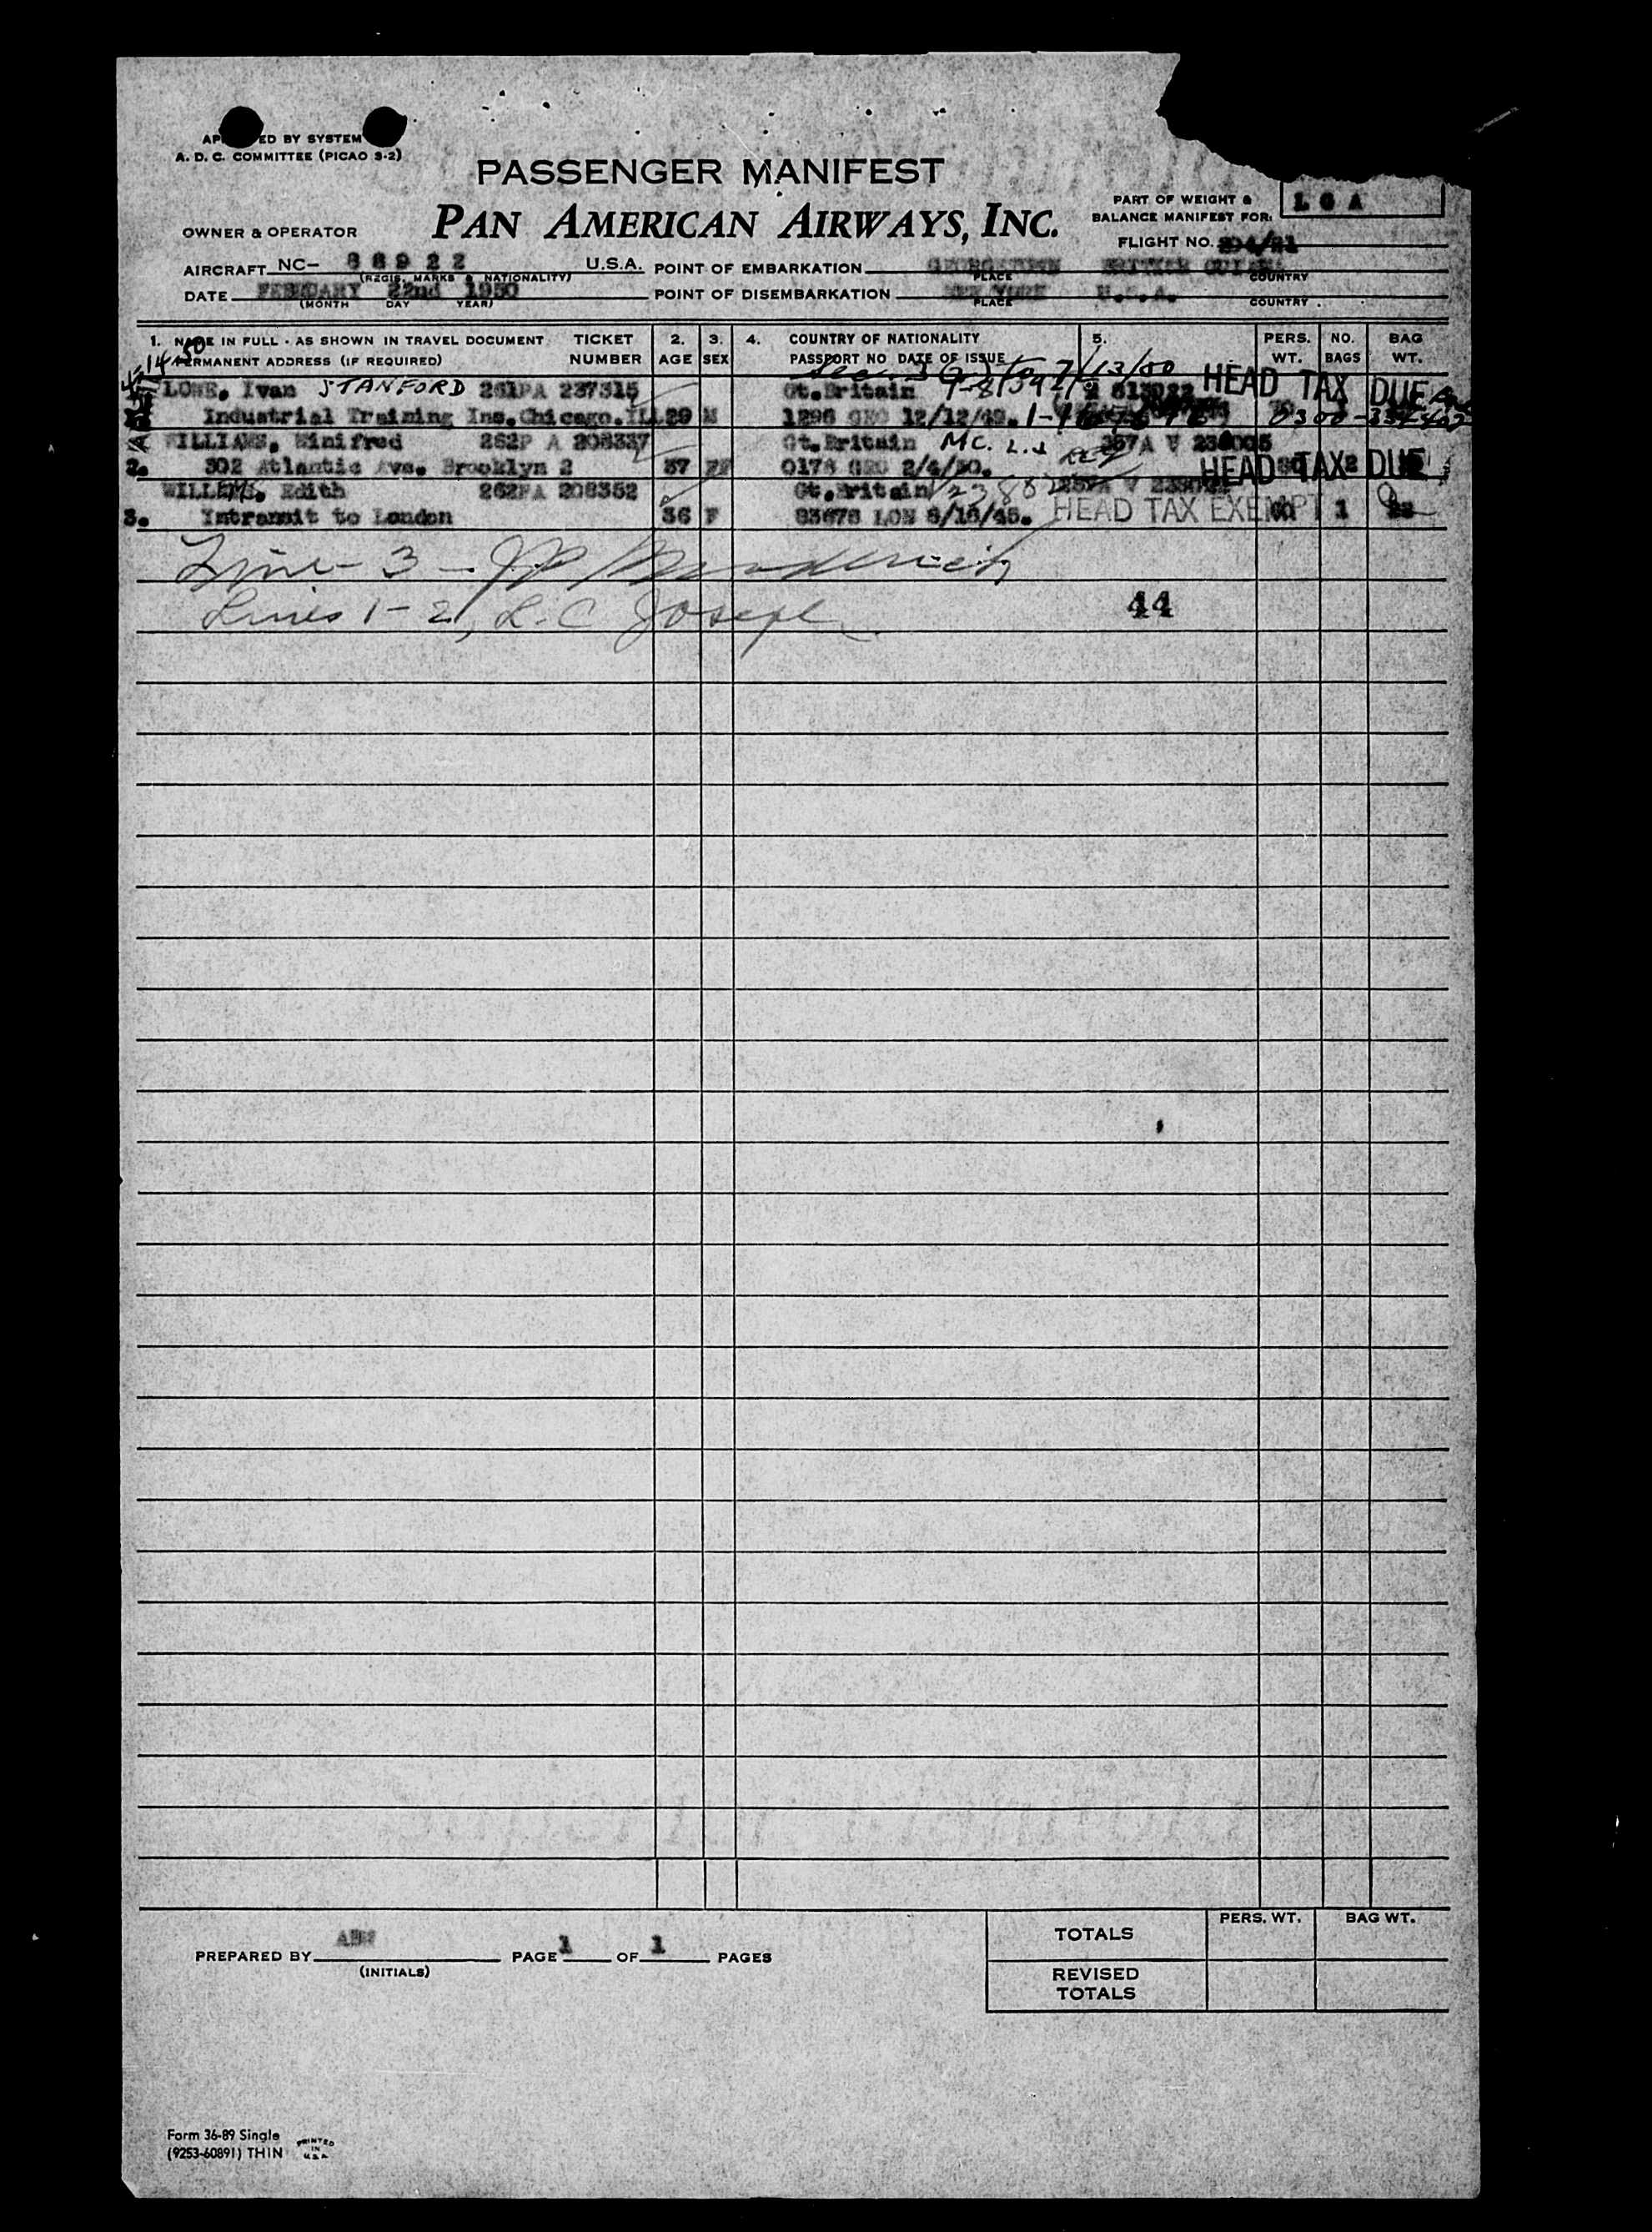 ED BY SYSTEM
A. D. C. COMMITTEE (PICAO 3-2)
PASSENGER MANIFEST
PAN AMERICAN AIRWAYS, INC.
PART OF WEIGHT &
BALANCE MANIFEST FOR: L G A
OWNER & OPERATOR
FLIGHT NO.
AIRCRAFT NC- 88922 U.S.A. POINT OF EMBARKATION GEORGETOWN BRITISH GUIANA
(REGIS. MARKS & NATIONALITY) PLACE COUNTRY
DATE FEBRUARY 22nd 1950 POINT OF DISEMBARKATION NEW YORK U.S.A.
(MONTH DAY YEAR) PLACE COUNTRY
1. NAME IN FULL - AS SHOWN IN TRAVEL DOCUMENT TICKET 2. 3. 4. COUNTRY OF NATIONALITY 5. PERS. NO. BAG
PERMANENT ADDRESS (IF REQUIRED) NUMBER AGE SEX PASSPORT NO. DATE OF ISSUE WT. BAGS WT.
LOWE, Ivan STANFORD 261PA 237315 Gt.Britain HEAD TAX DUE
Industrial Training Ins. Chicago. ILL 29 M 1296 GEO 12/12/49. 0300-
WILLIAMS, Winifred 262P A 208337 Gt.Britain 257A V
2. 302 Atlantic Ave. Brooklyn 2 37 0178 GEO 2/4/50. HEAD TAX DUE
WILLEMS, Edith 262PA 208352 Gt.Britain
3. Intransit to London 36 F 83678 LON 8/16/45. HEAD TAX EXEMPT 1
Line - 3 -
Lines 1-2, L.C. Joseph 44
PREPARED BY PAGE 1 OF 1 PAGES
(INITIALS)
PERS. WT. BAG WT.
TOTALS
REVISED
TOTALS
Form 36-89 Single
(9253-60891) THIN PRINTED
IN
U.S.A.